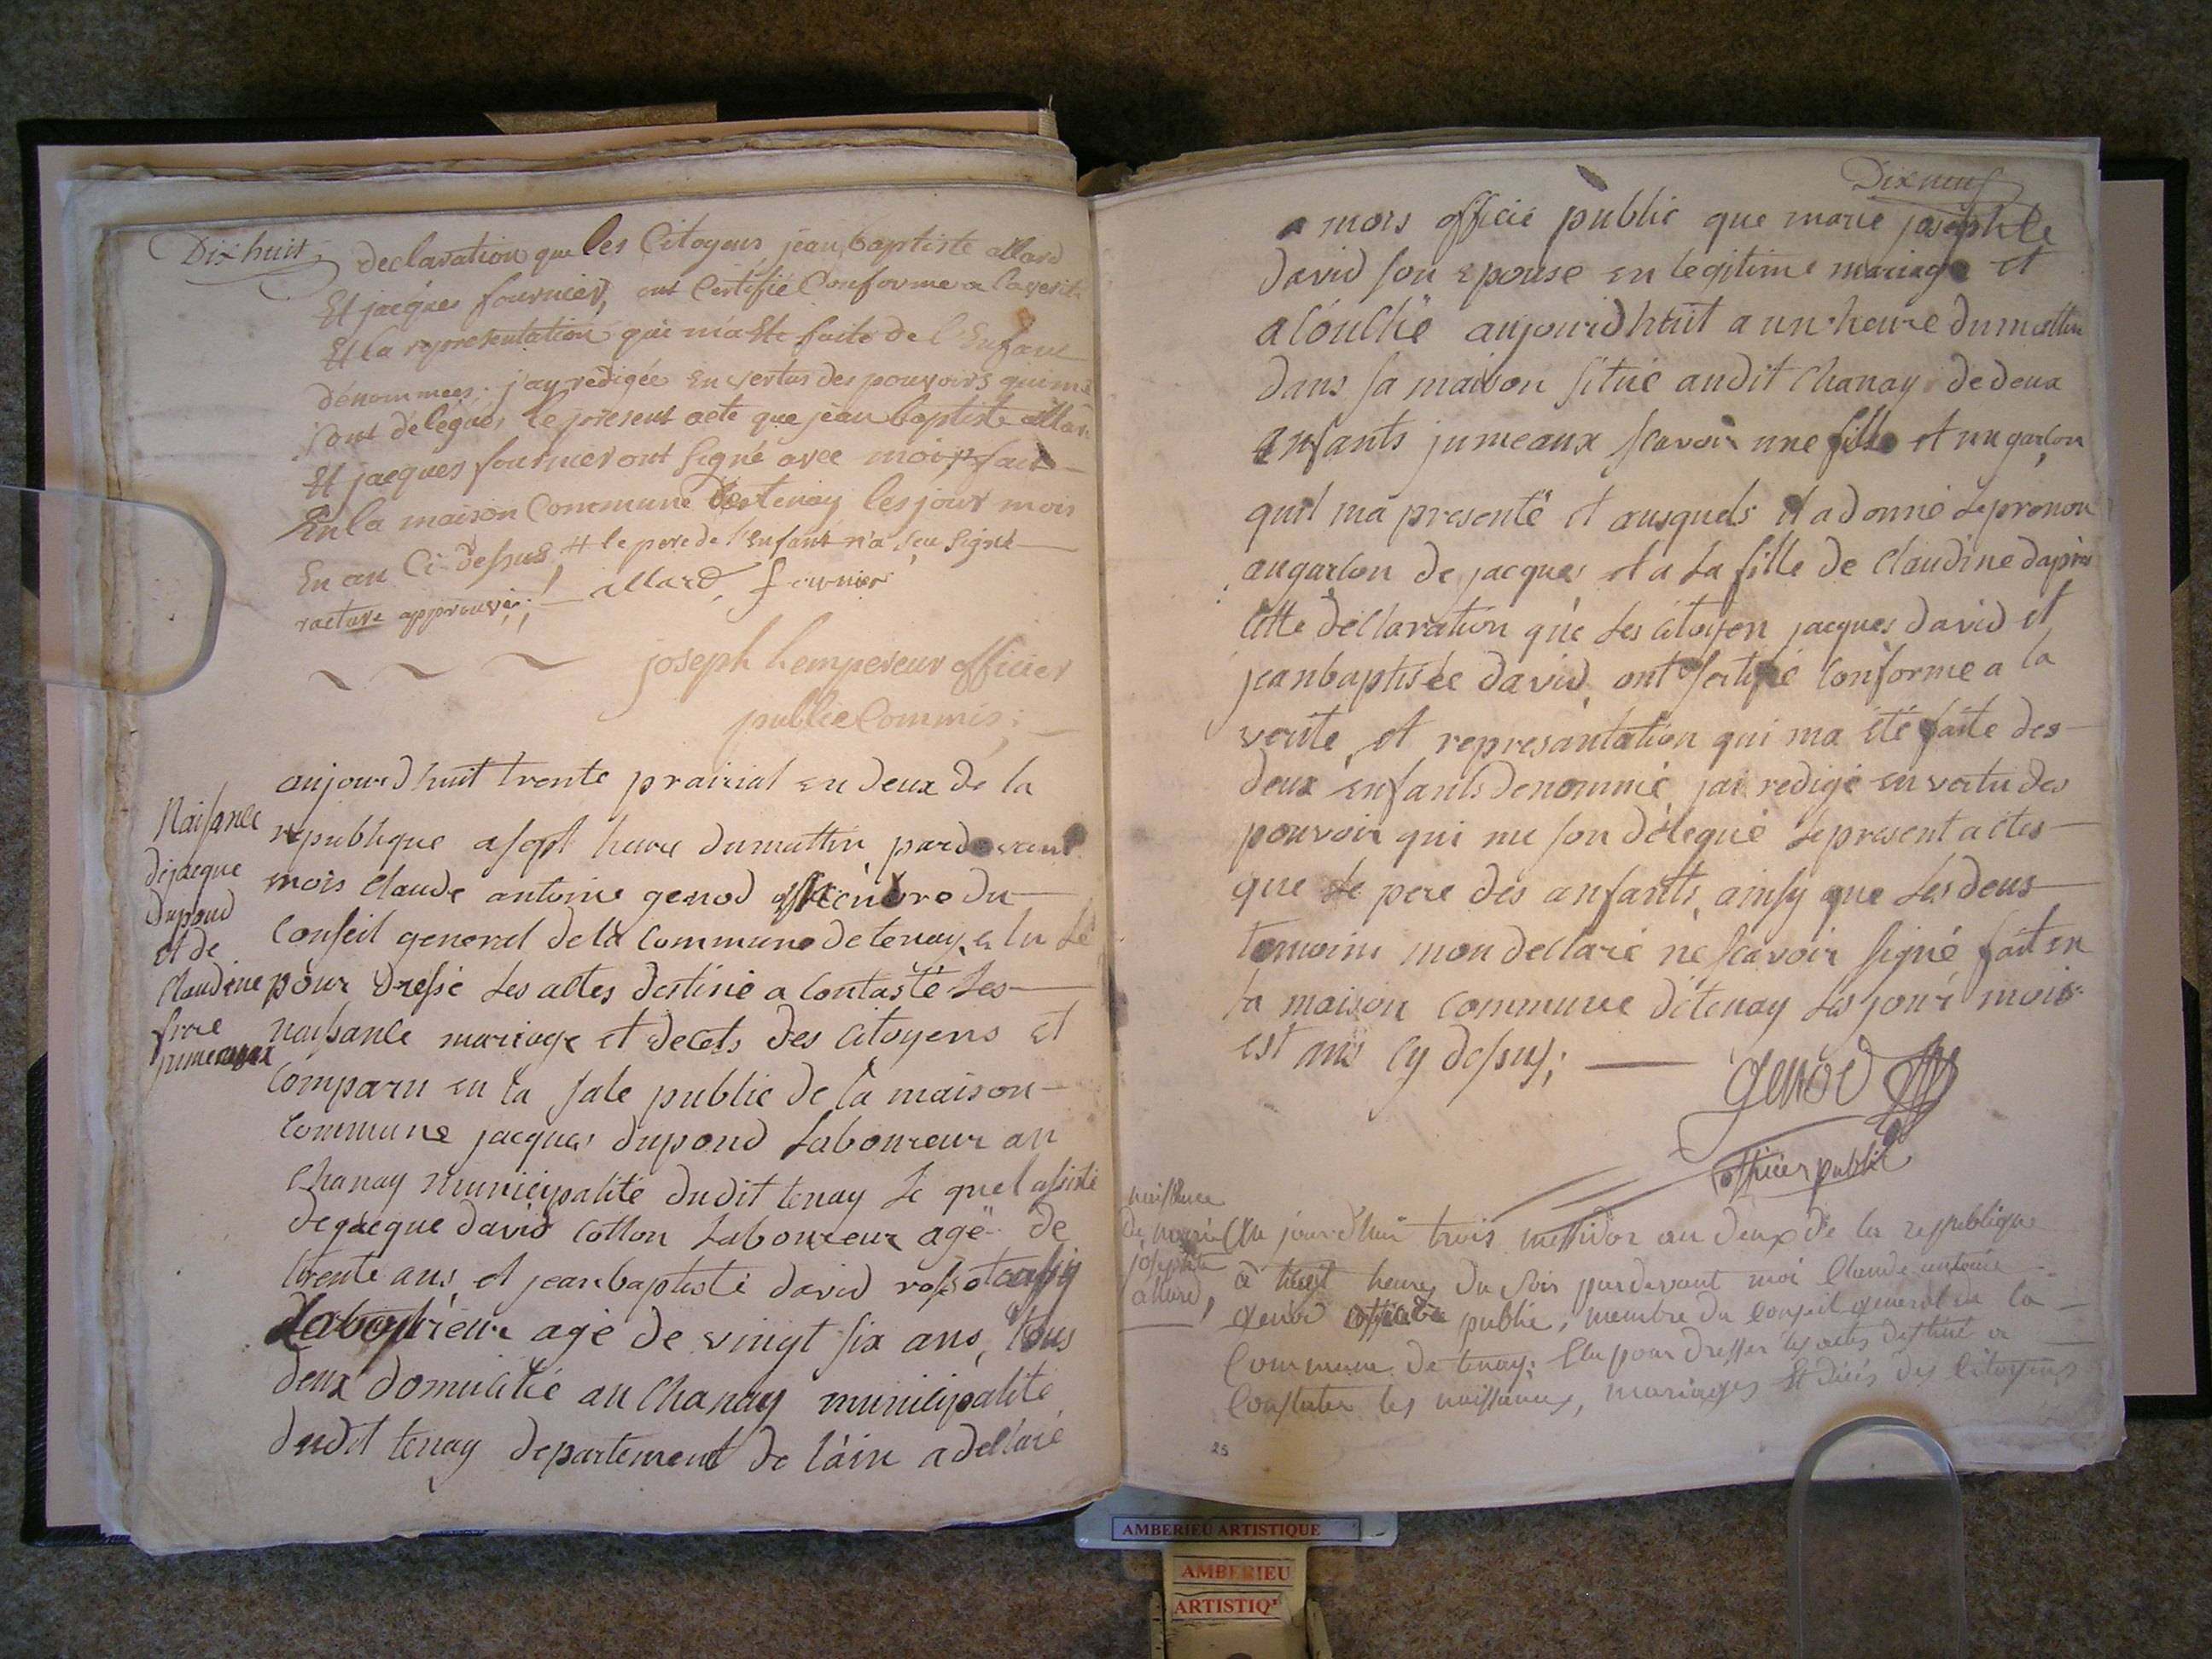 Dix huit
declaration que les Citoyens jean baptiste allard
Et jacques fournier, ont Certifié Conforme a la verite
Et la representation qui m'a Ete faite de l'Enfant
dénommées; j'ay redigée En vertus des pouvoirs qui me
sont délégués, le present acte que jean baptiste allard
Et jacques fournier ont signé avec moi, fait
En la maison Commune de tenay les jour mois
En an Ci-dessus # le pere de l'Enfant n'a seu signé
racture approuvée; allard, fournier
joseph lempereur officier
public Commis;
Naisance
de jacque
dupond
et de
Claudine
frere
jumeaux
aujourd'huit trente prairial en deux de la
republique a sept heure dumattin, pardevant
mois Claude antoine genod membre du
Conseil general de la Commune de tenay, elu le
pour dressé les actes destiné a Contasté les
naissance mariage et decets des Citoyens et
Comparu en la sale public de la maison
Commune jacques dupond laboureur au
Chanay municipalité dudit tenay le quel assisté
de jacque david Cotton laboureur agé de
trente ans, et jean baptiste david
laboureur agé de vingt six ans, tous
deux domicilié au Chanay municipalité
dudit tenay departement de l'ain a declaré
Dix neuf
a mois officié public que marie josephte
david son epouse en legitime mariage et
acouché aujouridhuit a un heure dumattin
dans sa maison situé audit Chanay de deux
anfants jumeaux scavoir une fille et un garcon
quil ma presenté et ausquels il a donné le prenom
au garcon de jacques et a la fille de Claudine dapres
cette declaration que les citoyen jacques david et
jean baptiste david, ont sertifié Conforme a la
verité, et represantation qui ma été faite des
deux enfants denommé, jai redigé en vertu des
pouvoir qui me son délegué le present actes
que le pere des anfants, ainsy que les deus
temoins mon declaré ne scavoir signé, fait en
la maison Commune de tenay les jour mois
est ans cy dessus;
genod
officier public
naissance
de marie
josephte
allard,
Au jourd'hui trois messidor an deux de la republique
à huit heures du soir pardevant moi Claude antoine
genod officier public, membre du Conseil general de la
Commune de tenay; Elu pour dresser les actes destiné a
Constater les naissances, mariages Et décès des Citoyens
25
AMBERIEU ARTISTIQUE
AMBERIEU
ARTISTIQ